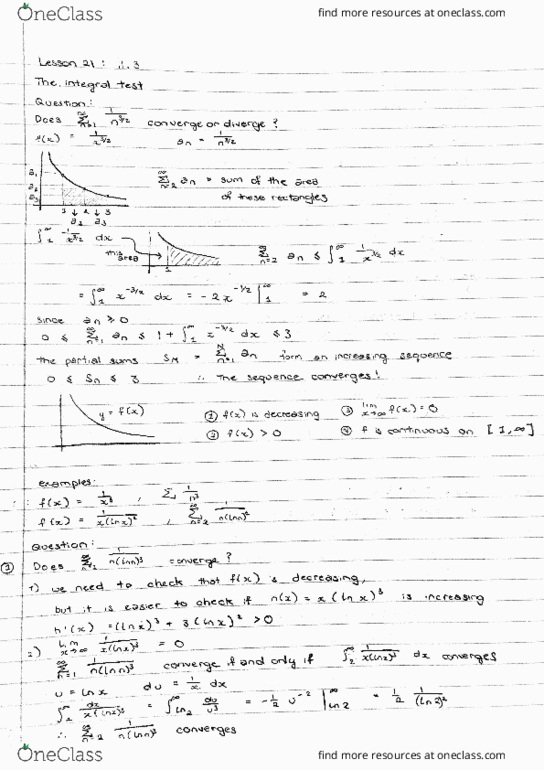 OneClass
find more resources at oneclass.com
Lesson 21 : 11.3
The integral test
Question:
Does ∞Σn=1 1/n^3/2 converge or diverge ?
f(x) = 1/x^3/2 an = 1/n^3/2
∞Σn=2 an = sum of the area
of these rectangles
∫1^∞ 1/x^3/2 dx
this area
∞Σn=2 an ≤ ∫1^∞ 1/x^3/2 dx
= ∫1^∞ x^-3/2 dx = -2x^-1/2 |1^∞ = 2
since an ≥ 0
0 ≤ ∞Σn=1 an ≤ 1 + ∫1^∞ x^-3/2 dx ≤ 3
the partial sums SN = NΣn=1 an form an increasing sequence
0 ≤ Sn ≤ 3 ∴ The sequence converges!
y = f(x)
① f(x) is decreasing ③ lim x→∞ f(x) = 0
② f(x) > 0 ④ f is continuous on [1,∞]
examples:
f(x) = 1/x^3 , Σ 1/n^3
f(x) = 1/x(lnx)^2 , ∞Σn=2 1/n(lnn)^2
Question:
Does ∞Σn=2 1/n(lnn)^3 converge ?
1) we need to check that f(x) is decreasing,
but it is easier to check if h(x) = x(lnx)^3 is increasing
h'(x) = (lnx)^3 + 3(lnx)^2 > 0
2) lim x→∞ 1/x(lnx)^3 = 0
∞Σn=1 1/n(lnn)^3 converge if and only if ∫2^∞ 1/x(lnx)^3 dx converges
u = lnx du = 1/x dx
∫2^∞ dx/x(lnx)^3 = ∫ln2^∞ du/u^3 = -1/2 u^-2 |ln2^∞ = 1/2 1/(ln2)^2
∴ ∞Σn=2 1/n(lnn)^3 converges
OneClass
find more resources at oneclass.com